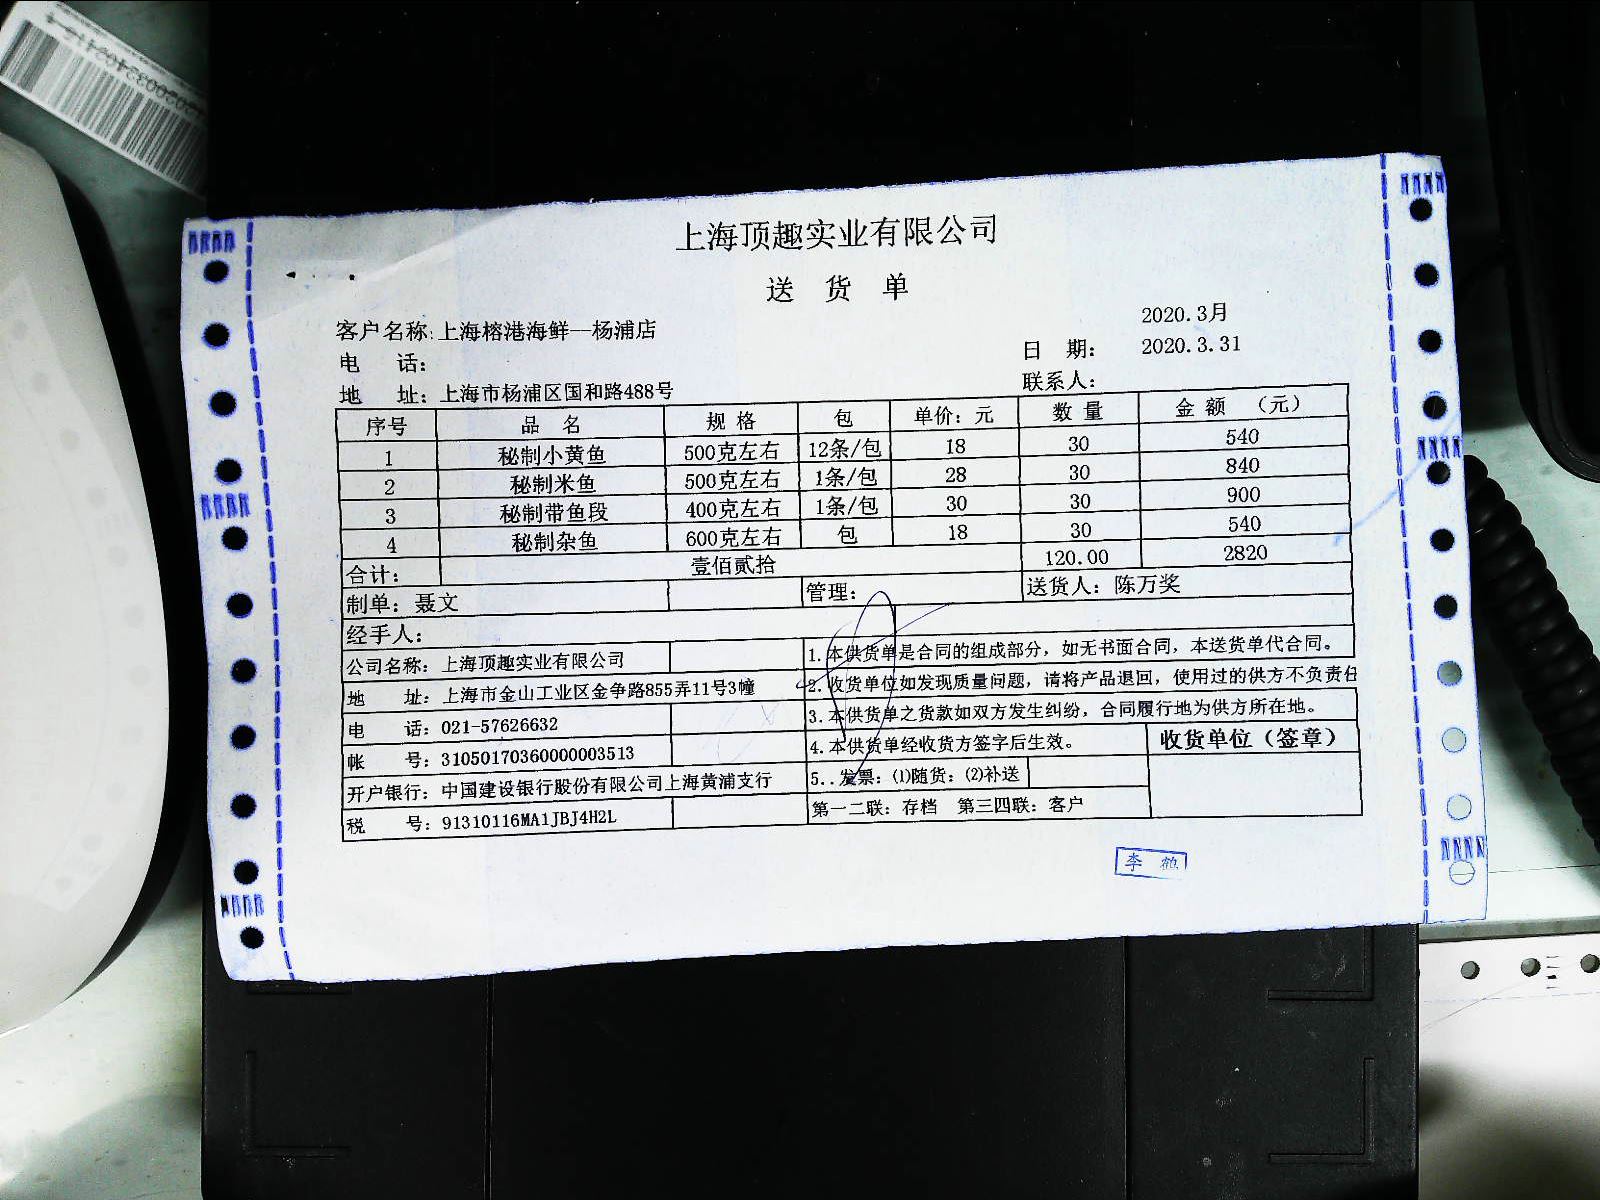 上海顶趣实业有限公司
送 货 单
2020.3月
客户名称: 上海榕港海鲜—杨浦店
电 话:
日 期: 2020.3.31
地 址: 上海市杨浦区国和路488号
联系人:
序号 品 名 规 格 包 单价: 元 数 量 金 额 (元)
1 秘制小黄鱼 500克左右 12条/包 18 30 540
2 秘制米鱼 500克左右 1条/包 28 30 840
3 秘制带鱼段 400克左右 1条/包 30 30 900
4 秘制杂鱼 600克左右 包 18 30 540
合计: 壹佰贰拾 120.00 2820
制单: 聂文 管理: 送货人: 陈万奖
经手人:
公司名称: 上海顶趣实业有限公司
地 址: 上海市金山工业区金争路855弄11号3幢
电 话: 021-57626632
帐 号: 31050170360000003513
开户银行: 中国建设银行股份有限公司上海黄浦支行
税 号: 91310116MA1JBJ4H2L
1.本供货单是合同的组成部分，如无书面合同，本送货单代合同。
2.收货单位如发现质量问题，请将产品退回，使用过的供方不负责任
3.本供货单之货款如双方发生纠纷，合同履行地为供方所在地。
4.本供货单经收货方签字后生效。
收货单位（签章）
5..发票: ⑴随货: ⑵补送
第一二联: 存档 第三四联: 客户
李